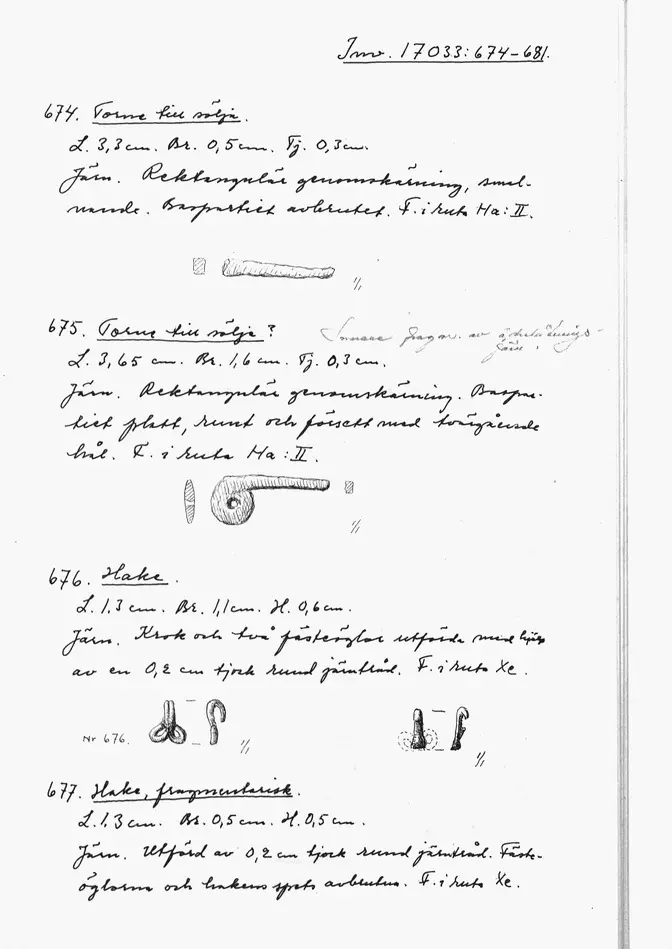 Inv. 17033:674-681.
674. Torne till sölja.
L. 3,3 cm. Br. 0,5 cm. Tj. 0,3 cm.
Järn. Rektangulär genomskärning, smal-
nande. Baspartiet avbrutet. F. i ruta Ha:II.
1/1
675. Torne till sölja? Snarare fragm. av
järn.
L. 3,65 cm. Br. 1,6 cm. Tj. 0,3 cm.
Järn. Rektangulär genomskärning. Baspar-
tiet platt, runt och försett med tvärgående
hål. F. i ruta Ha:II.
1/1
676. Hake.
L. 1,3 cm. Br. 1,1 cm. H. 0,6 cm.
Järn. Krok och två fästöglor utförda med hjälp
av en 0,2 cm tjock rund järntråd. F. i ruta Xc.
Nr 676. 1/1 1/1
677. Hake, fragmentarisk.
L. 1,3 cm. Br. 0,5 cm. H. 0,5 cm.
Järn. Utförd av 0,2 cm tjock rund järntråd. Fäst-
öglorna och hakens spets avbrutna. F. i ruta Xc.